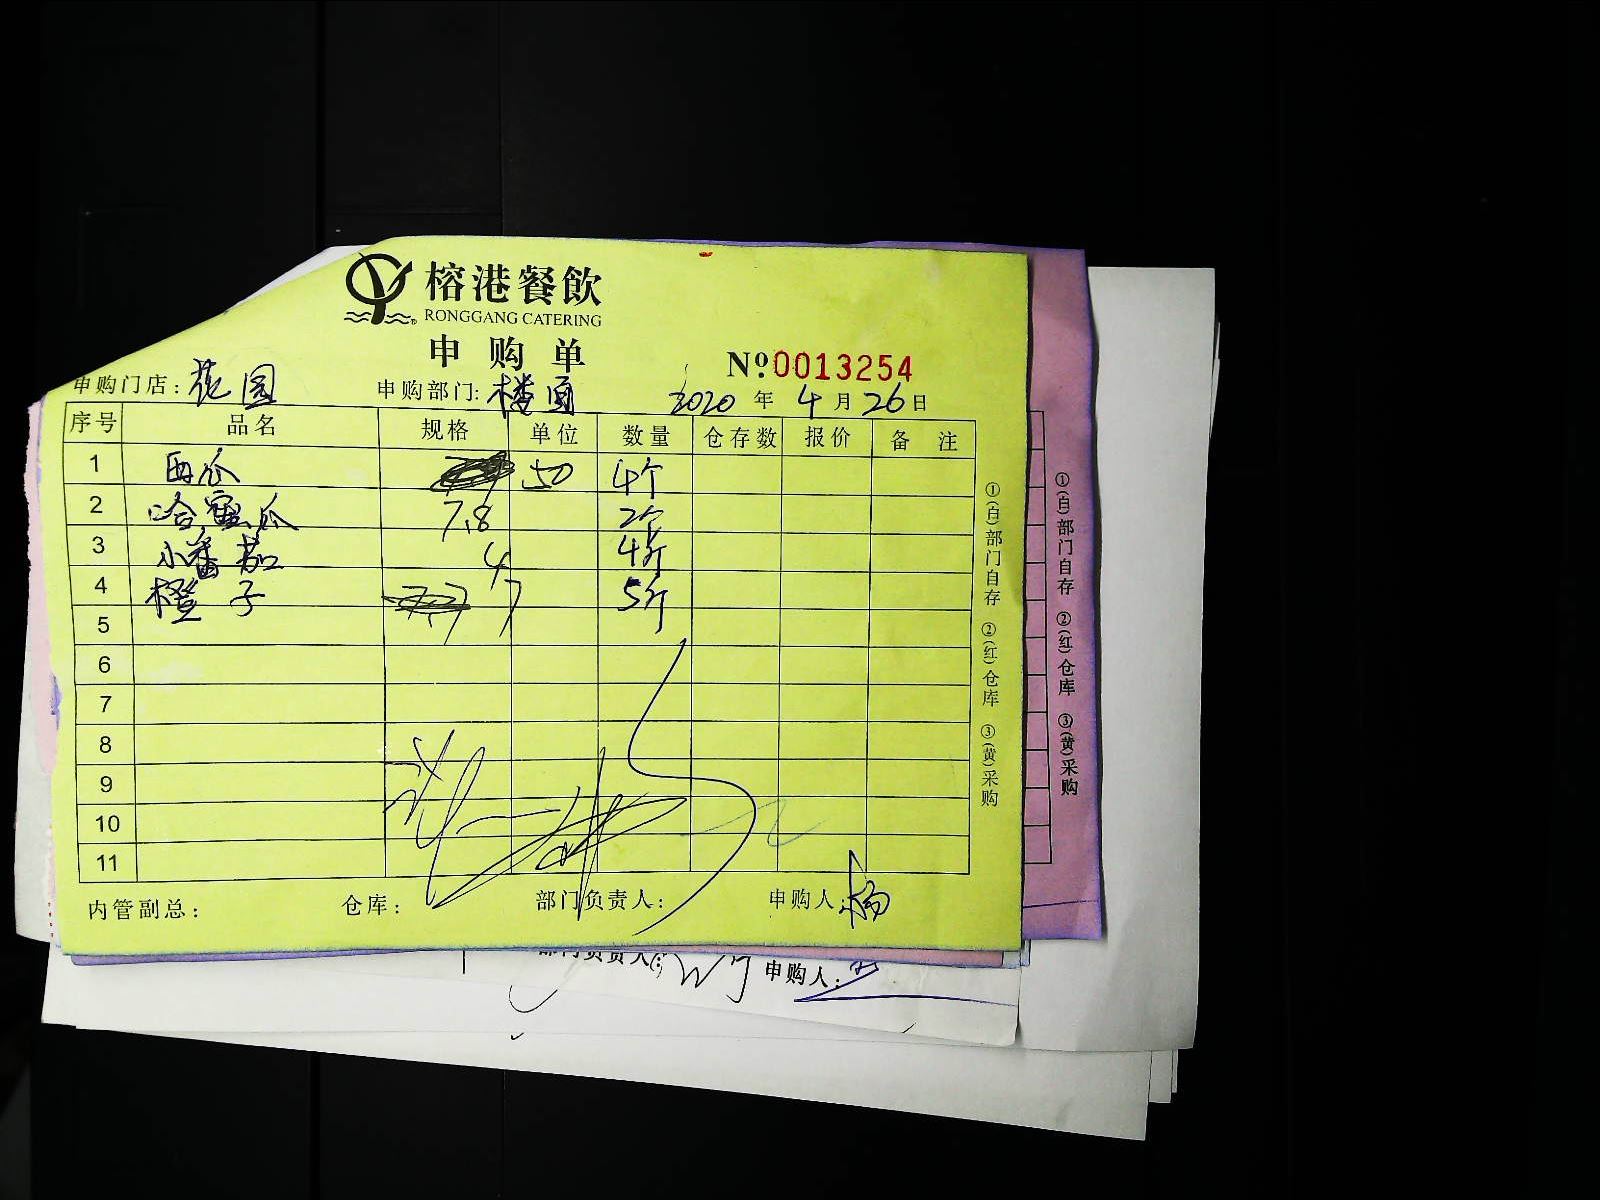 榕港餐飲
RONGGANG CATERING
申购单
№0013254
申购门店：花园 申购部门：楼面 2020年4月26日
序号 品名 规格 单位 数量 仓存数 报价 备注
1 西瓜 50 4个
2 哈密瓜 7.8 2个
3 小番茄 4 4斤
4 橙子 7 5斤
5
6
7
8
9
10
11
内管副总： 仓库： 部门负责人： 申购人：杨
①(白)部门自存 ②(红)仓库 ③(黄)采购
①(白)部门自存 ②(红)仓库 ③(黄)采购
部门负责人： 申购人：